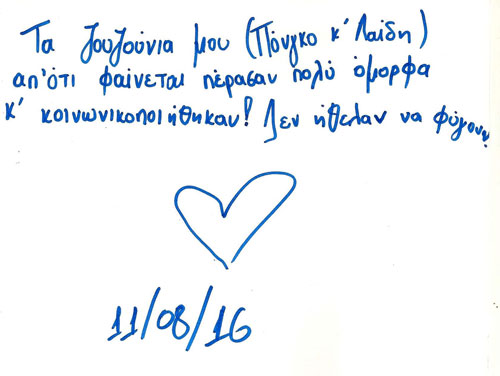 Τα ζουζούνια μου (Πόνγκο κ' Λαίδη)
απ'ότι φαίνεται πέρασαν πολύ όμορφα
κ' κοινωνικοποιήθηκαν! Δεν ήθελαν να φύγουν
11/08/16